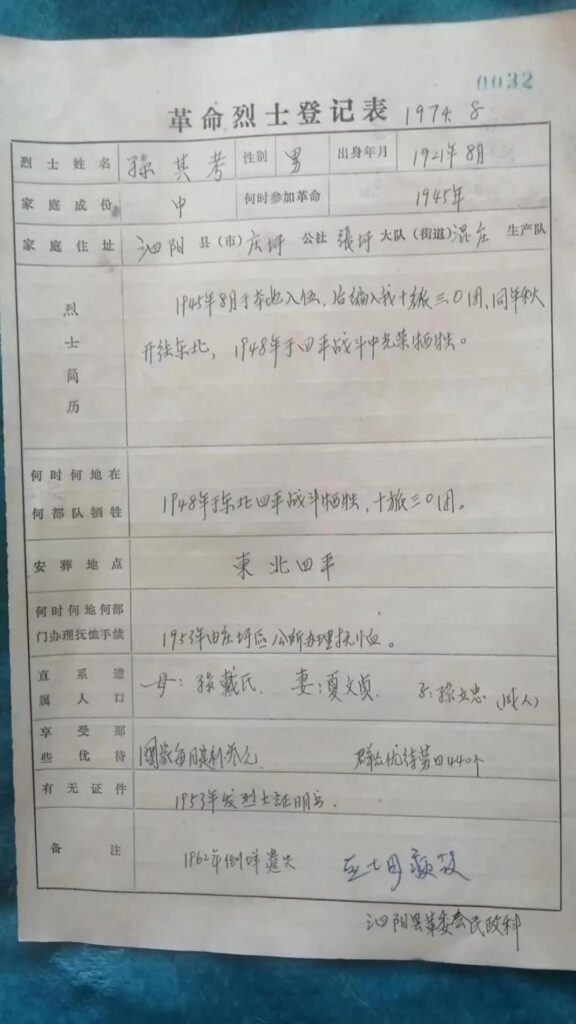 0032
革命烈士登记表 1974.8
烈士姓名 孫其考 性别 男 出身年月 1921年8月
家庭成份 中 何时参加革命 1945年
家庭住址 泗阳 县(市) 庄圩 公社 張圩 大队(街道) 混庄 生产队
烈士简历
1945年8月于本地入伍,后编入我十旅三〇团,同年秋
开往东北,1948年于四平战斗中光荣牺牲。
何时何地在
何部队牺牲
1948年于东北四平战斗牺牲,十旅三〇团。
安葬地点 東北四平
何时何地何部
门办理抚恤手续
1953年由庄圩区公所办理抚恤。
直系遗
属人口
母:孫戴氏. 妻:夏文贞 子:孫立忠(成人)
享受那
些优待
国家每月定补叁元. 群众优待 440个
有无证件 1953年发烈士証明书.
备注 1962年倒 遗失
泗阳县革委会民政科